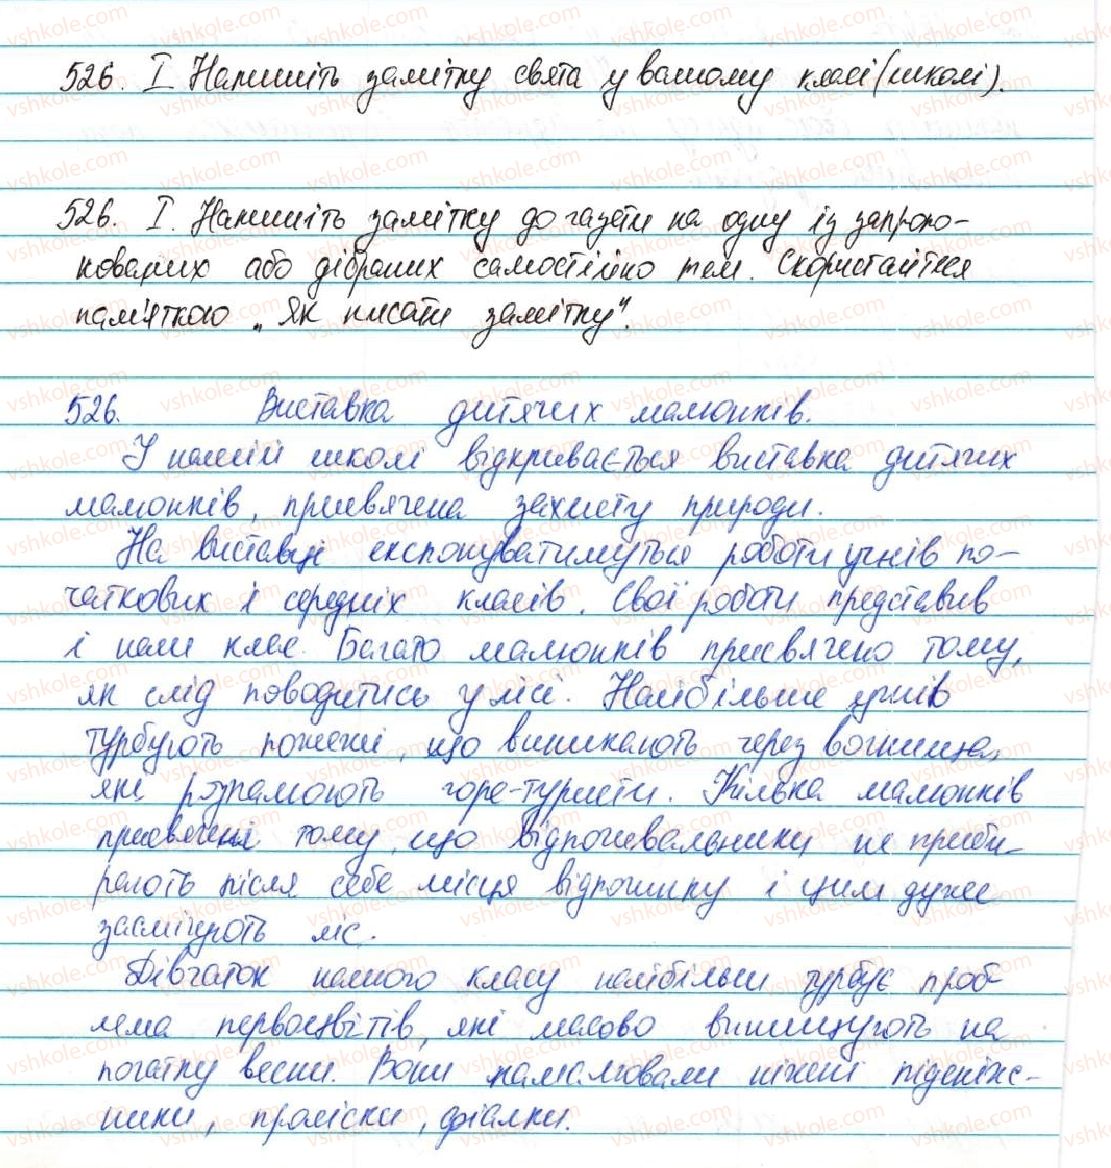 526. I Напишіть замітку свята у вашому класі (школі).
526. I. Напишіть замітку до газети на одну із запропо-
нованих або дібраних самостійно тем. Скористайтеся
пам'яткою „Як писати замітку".
526. Виставка дитячих малюнків.
У нашій школі відкривається виставка дитячих
малюнків, присвячена захисту природи.
На виставці експонуватимуться роботи учнів по-
чаткових і середніх класів. Свої роботи представив
і наш клас. Багато малюнків присвячено тому,
як слід поводитись у лісі. Найбільше учнів
турбують пожежі, що виникають через вогнища,
які розпалюють горе-туристи. Кілька малюнків
присвячені тому, що відпочивальники не приби-
рають після себе місця відпочинку і цим дуже
засмічують ліс.
Дівчаток нашого класу найбільш турбує проб-
лема первоцвітів, які масово винищують на
початку весни. Вони намалювали ніжні підсніж-
ники, проліски, фіалки.